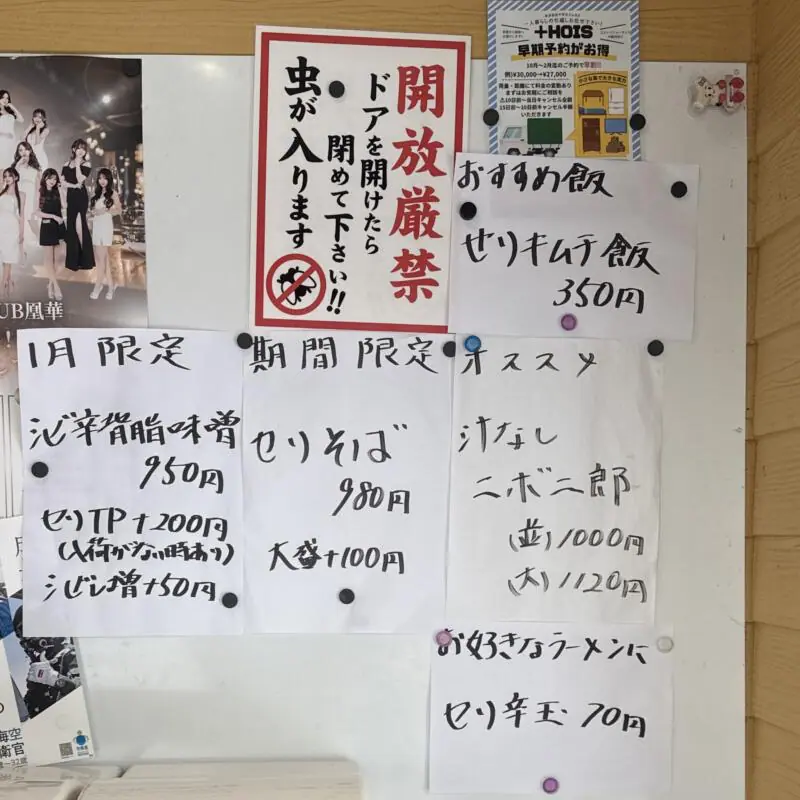 +HOIS
早期予約がお得
10月～2月迄のご予約で早割!!
例)¥30,000→¥27,000
開放厳禁
ドアを開けたら
閉めて下さい!!
虫が入ります
おすすめ飯
せりキムチ飯
350円
UB凰華
1月限定
シビ辛背脂味噌
950円
セリTP+200円
(入荷がない時あり)
シビレ増+50円
期間限定
セリそば
980円
大盛+100円
オススメ
汁なし
ニボ二郎
(並)1000円
(大)1120円
お好きなラーメンに
セリ辛玉 70円
海空
衛官